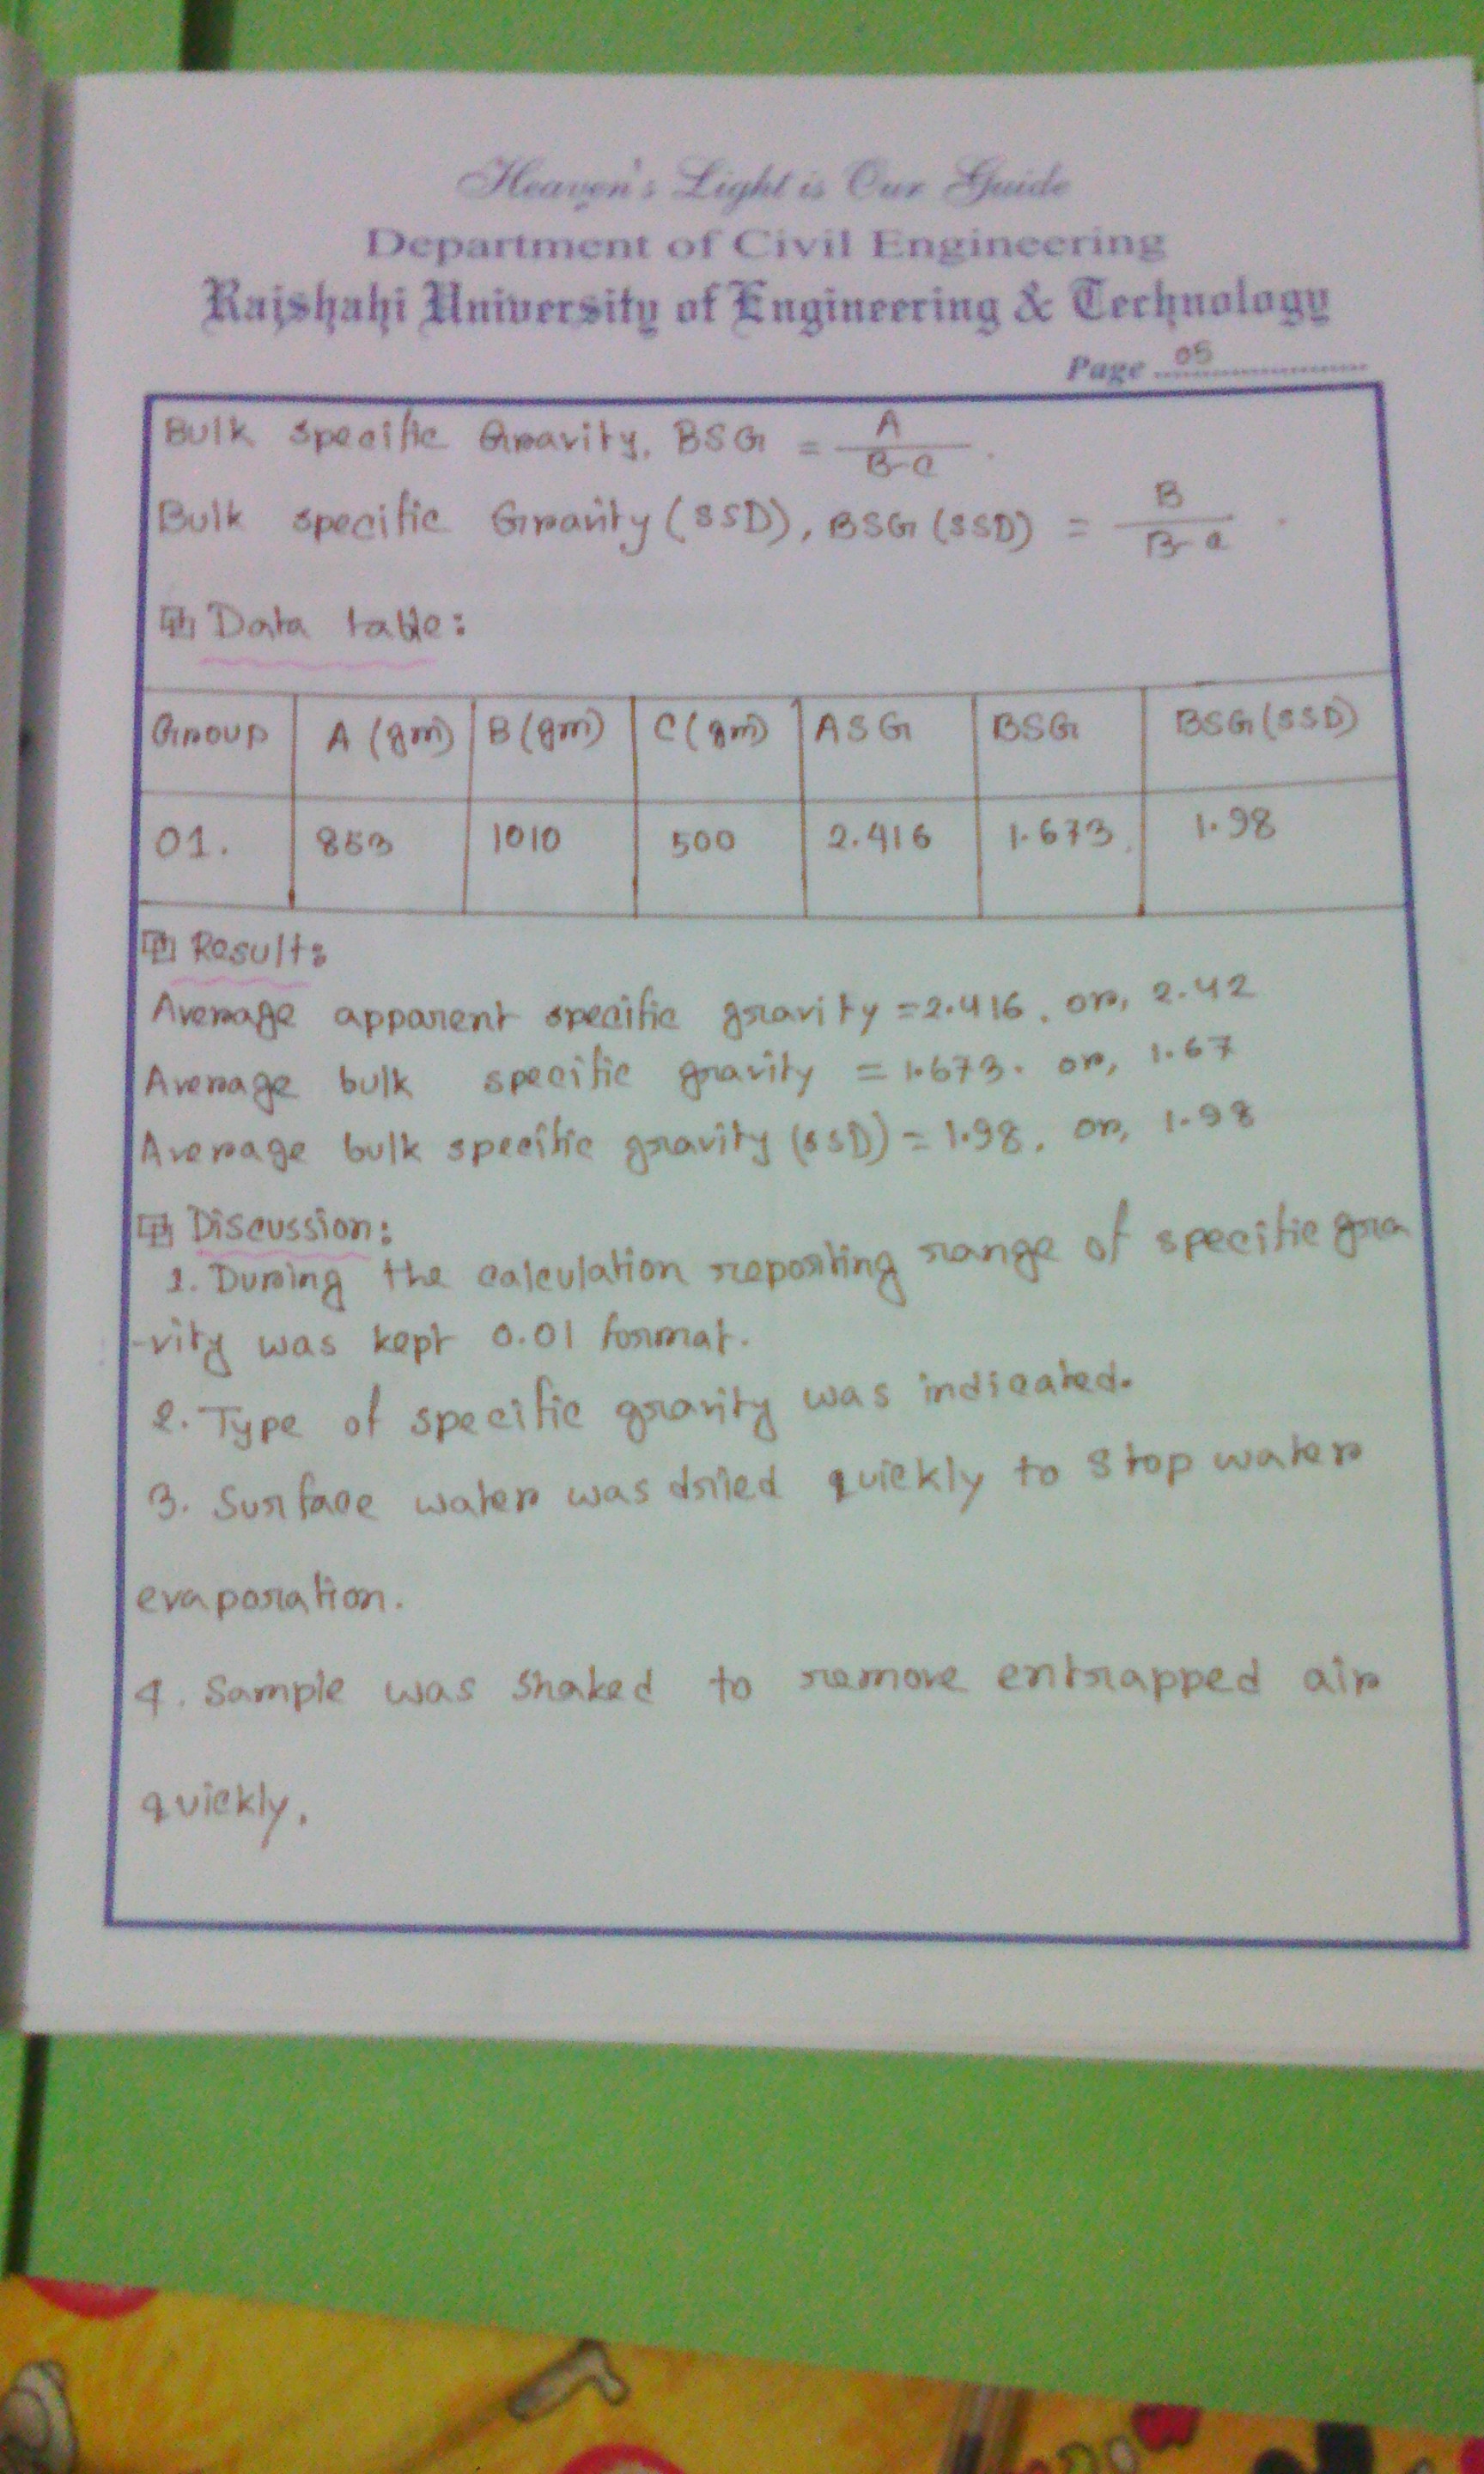 Heaven's Light is Our Guide
Department of Civil Engineering
Rajshahi University of Engineering & Technology
Page 05
Bulk specific Gravity, BSG = A / B-C .
Bulk specific Gravity (SSD), BSG (SSD) = B / B-C .
Data table:
Group A (gm) B (gm) C (gm) ASG BSG BSG (SSD)
01. 853 1010 500 2.416 1.673 1.98
Result:
Average apparent specific gravity = 2.416, or, 2.42
Average bulk specific gravity = 1.673. or, 1.67
Average bulk specific gravity (SSD) = 1.98, or, 1.98
Discussion:
1. During the calculation reporting range of specific gra
-vity was kept 0.01 format.
2. Type of specific gravity was indicated.
3. Surface water was dried quickly to stop water
evaporation.
4. Sample was shaked to remove entrapped air
quickly.